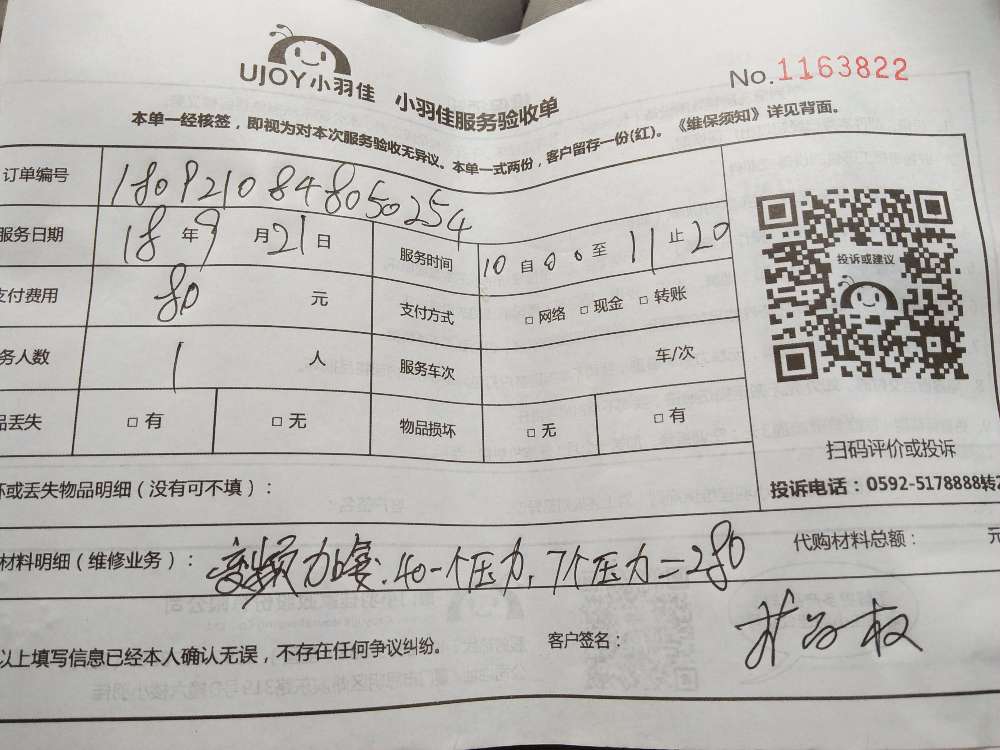 UJOY小羽佳 小羽佳服务验收单
No.1163822
本单一经核签，即视为对本次服务验收无异议。本单一式两份，客户留存一份(红)。《维保须知》详见背面。
订单编号 1809210848050254
服务日期 18年9月21日 服务时间 10自00至11止20
支付费用 80元 支付方式 □网络 □现金 □转账
务人数 1人 服务车次 车/次
品丢失 □有 □无 物品损坏 □无 □有
投诉或建议
扫码评价或投诉
投诉电话：0592-5178888转2
坏或丢失物品明细（没有可不填）：
材料明细（维修业务）：变频加 40一个压力，7个压力=280
代购材料总额： 元
以上填写信息已经本人确认无误，不存在任何争议纠纷。
客户签名：